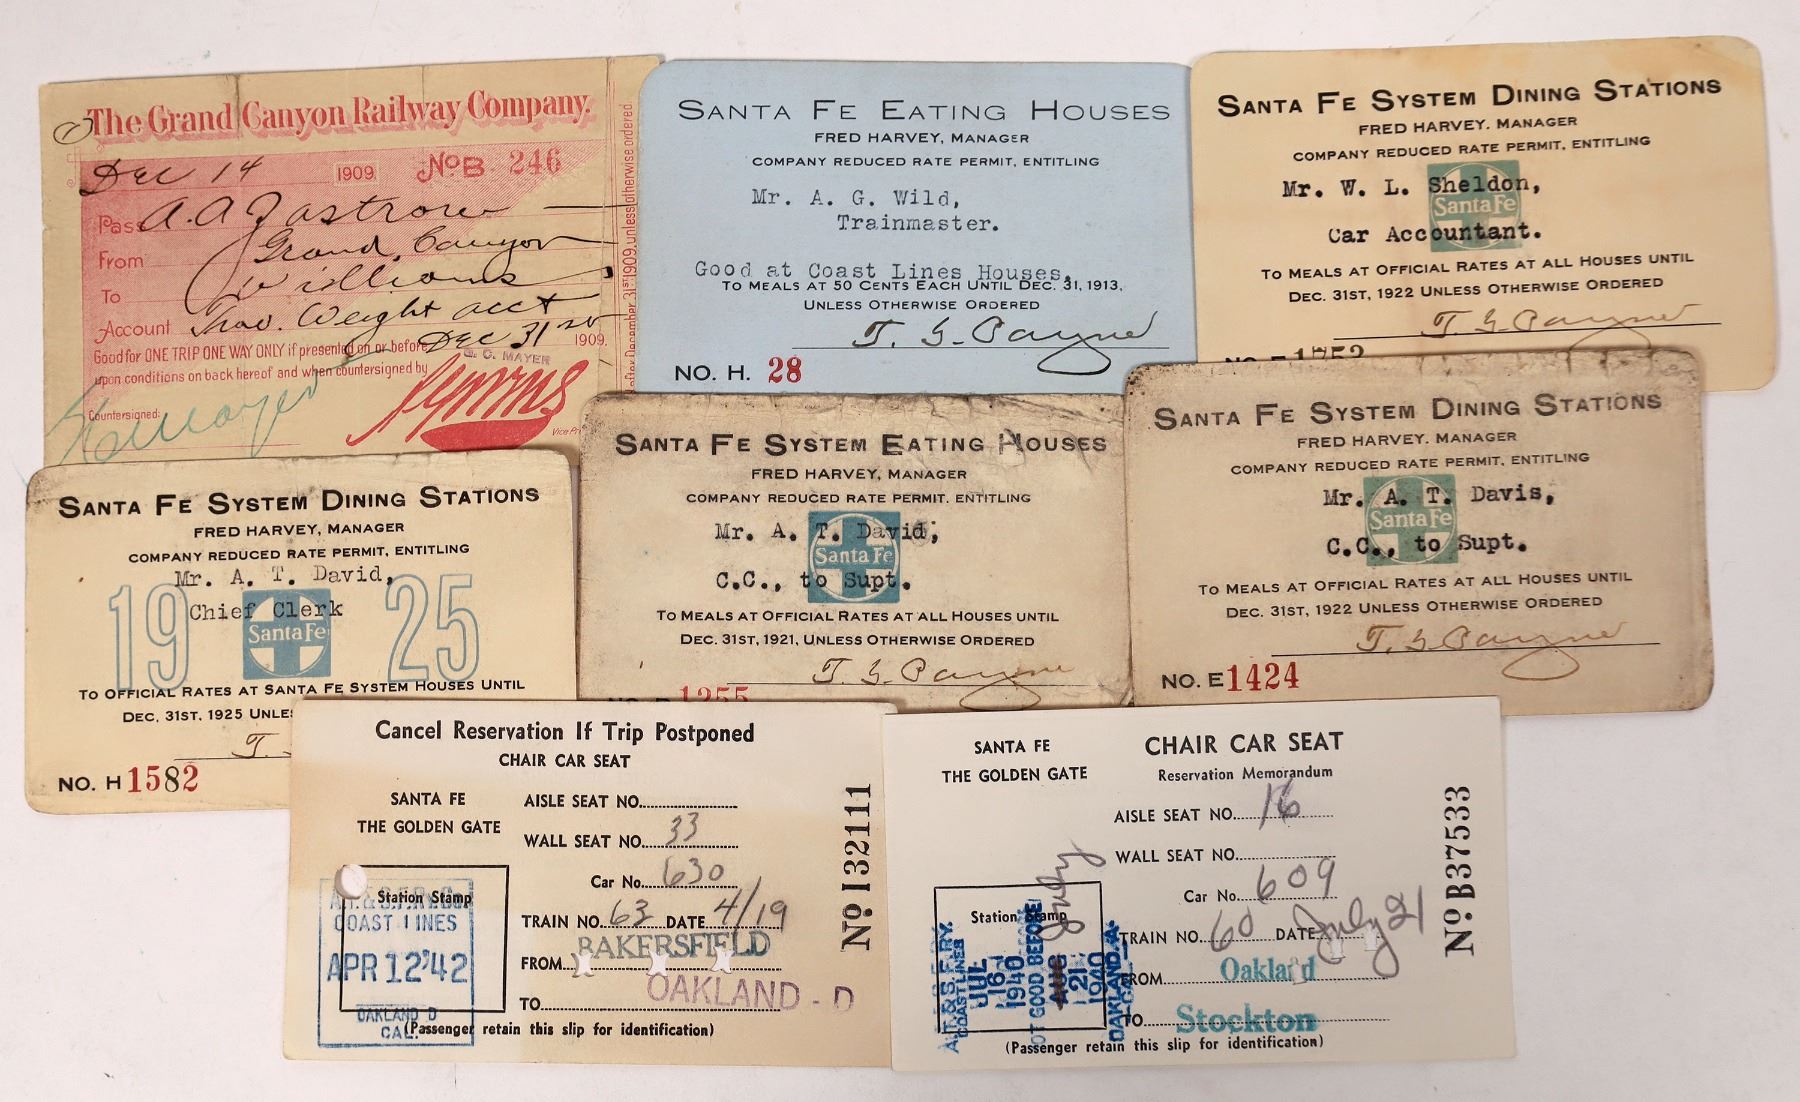 The Grand Canyon Railway Company.
Dec 14 1909 No B 246
Pass A. A. Zastrow
From Grand Canyon
To Williams
Account Trav. Weight acct
Good for ONE TRIP ONE WAY ONLY if presented on or before Dec 31st 1909.
upon conditions on back hereof and when countersigned by
G. C. MAYER
Countersigned:
Vice Pr
after December 31st 1909, unless otherwise ordered.
SANTA FE EATING HOUSES
FRED HARVEY, MANAGER
COMPANY REDUCED RATE PERMIT, ENTITLING
Mr. A. G. Wild,
Trainmaster.
Good at Coast Lines Houses,
TO MEALS AT 50 CENTS EACH UNTIL DEC. 31, 1913,
UNLESS OTHERWISE ORDERED
T. G. Payne
NO. H. 28
SANTA FE SYSTEM DINING STATIONS
FRED HARVEY. MANAGER
COMPANY REDUCED RATE PERMIT, ENTITLING
Mr. W. L. Sheldon,
Santa Fe
Car Accountant.
TO MEALS AT OFFICIAL RATES AT ALL HOUSES UNTIL
DEC. 31ST, 1922 UNLESS OTHERWISE ORDERED
T. G. Payne
NO. E 1752
SANTA FE SYSTEM DINING STATIONS
FRED HARVEY, MANAGER
COMPANY REDUCED RATE PERMIT, ENTITLING
Mr. A. T. David,
Chief Clerk
19 Santa Fe 25
TO OFFICIAL RATES AT SANTA FE SYSTEM HOUSES UNTIL
DEC. 31ST. 1925 UNLES
T.
NO. H 1582
SANTA FE SYSTEM EATING HOUSES
FRED HARVEY, MANAGER
COMPANY REDUCED RATE PERMIT. ENTITLING
Mr. A. T. David,
Santa Fe
C.C., to Supt.
TO MEALS AT OFFICIAL RATES AT ALL HOUSES UNTIL
DEC. 31ST, 1921, UNLESS OTHERWISE ORDERED
T. G. Payne
1255
SANTA FE SYSTEM DINING STATIONS
FRED HARVEY. MANAGER
COMPANY REDUCED RATE PERMIT. ENTITLING
Mr. A. T. Davis,
Santa Fe
C.C., to Supt.
TO MEALS AT OFFICIAL RATES AT ALL HOUSES UNTIL
DEC. 31ST, 1922 UNLESS OTHERWISE ORDERED
T. G. Payne
NO. E 1424
Cancel Reservation If Trip Postponed
CHAIR CAR SEAT
SANTA FE
THE GOLDEN GATE
AISLE SEAT NO.
WALL SEAT NO. 33
Car No. 630
TRAIN NO. 63 DATE 4/19
FROM BAKERSFIELD
TO OAKLAND - D
Station Stamp
A.T. & S.F. RY. Co.
COAST LINES
APR 12 '42
OAKLAND D
CAL.
(Passenger retain this slip for identification)
No 132111
SANTA FE
THE GOLDEN GATE
CHAIR CAR SEAT
Reservation Memorandum
AISLE SEAT NO. 16
WALL SEAT NO.
Car No. 609
TRAIN NO. 60 DATE July 21
FROM Oakland
TO Stockton
Station Stamp
A.T. & S.F. RY.
COAST LINES
JUL 16 1940
NOT GOOD BEFORE
July
AUG 21 1940
OAKLAND, A.
CAL
(Passenger retain this slip for identification)
No B37533